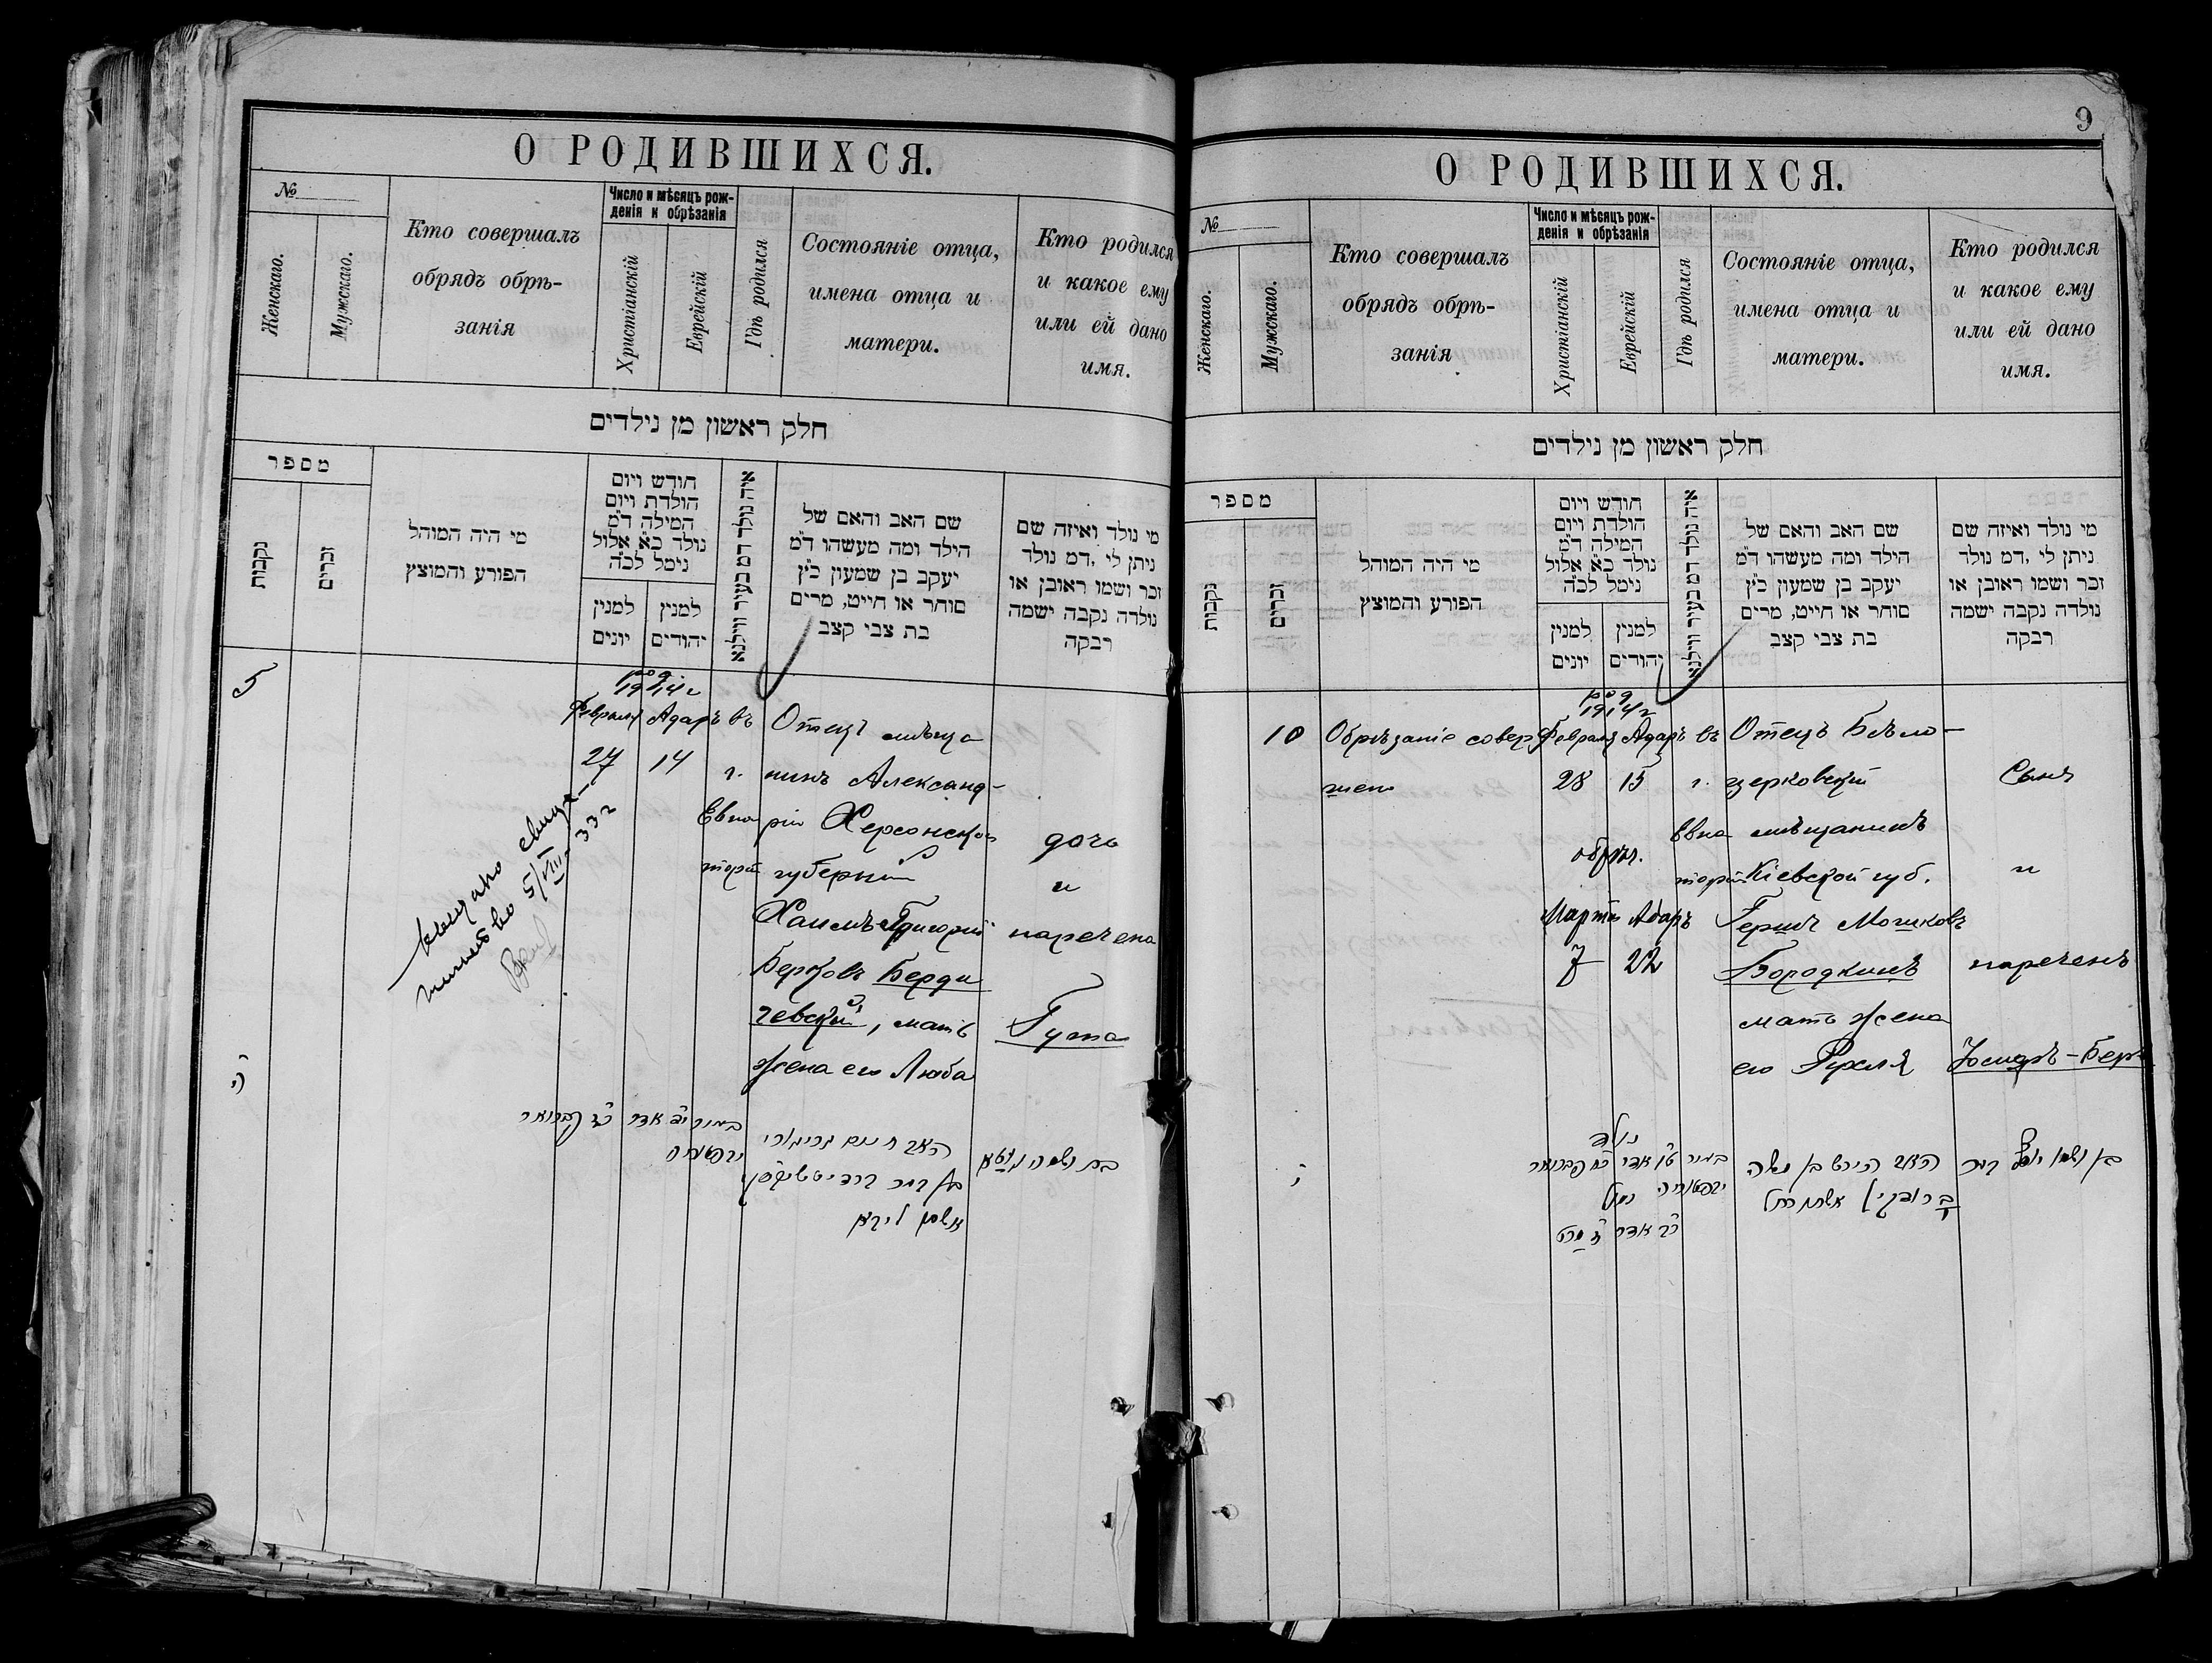 О РОДИВШИХСЯ.
№
Женскаго.
Мужскаго.
Кто совершалъ
обрядъ обрѣ-
занія
Число и мѣсяцъ рож-
денія и обрѣзанія
Христіанскій
Еврейскій
Гдѣ родился
Состояніе отца,
имена отца и
матери.
Кто родился
и какое ему
или ей дано
имя.
חלק ראשון מן נילדים
מספר
נקבות
זכרים
מי היה המוהל
הפורע והמוצץ
חודש ויום
הולדת ויום
המילה ד״מ
נולד כ״א אלול
נימל לכ״ה
למנין
יונים
למנין
יהודים
איה נולד דמ בעיר ווילנא
שם האב והאם של
הילד ומה מעשהו ד״מ
יעקב בן שמעון כ״ץ
סוחר או חייט, מרים
בת צבי קצב
מי נולד ואיזה שם
ניתן לי, דמ נולד
זכר ושמו ראובן או
נולדה נקבה ישמה
רבקה
5
род
1914 г
Февраля Адаръ въ
27 14 г.
Евпа
торіи
Отецъ мѣща
нинъ Александ-
ріи Херсонской
губерніи
Хаимъ Григорій
Берковъ Берди
чевскій, мать
жена его Люба
дочь
и
наречена
Гута
Выдано свиде-
тельство 5/VIII-33 г
ה
О РОДИВШИХСЯ.
9
№
Женскаго.
Мужскаго.
Кто совершалъ
обрядъ обрѣ-
занія
Число и мѣсяцъ рож-
денія и обрѣзанія
Христіанскій
Еврейскій
Гдѣ родился
Состояніе отца,
имена отца и
матери.
Кто родился
и какое ему
или ей дано
имя.
חלק ראשון מן נילדים
מספר
נקבות
זכרים
מי היה המוהל
הפורע והמוצץ
חודש ויום
הולדת ויום
המילה ד״מ
נולד כ״א אלול
נימל לכ״ה
למנין
יונים
למנין
יהודים
איה נולד דמ בעיר ווילנא
שם האב והאם של
הילד ומה מעשהו ד״מ
יעקב בן שמעון כ״ץ
סוחר או חייט, מרים
בת צבי קצב
מי נולד ואיזה שם
ניתן לי, דמ נולד
זכר ושמו ראובן או
נולדה נקבה ישמה
רבקה
10
Обрѣзаніе совер
шен
род
1914 г
Февраля Адаръ въ
28 15 г.
Евпа
торіи
обрѣз.
Марта Адаръ
7 22
Отецъ Бѣло-
церковскій
мѣщанинъ
Кіевской губ.
Гершъ Мошковъ
Бородкинъ
мать жена
его Рухля
Сынъ
и
нареченъ
Іосифъ-Беръ
י